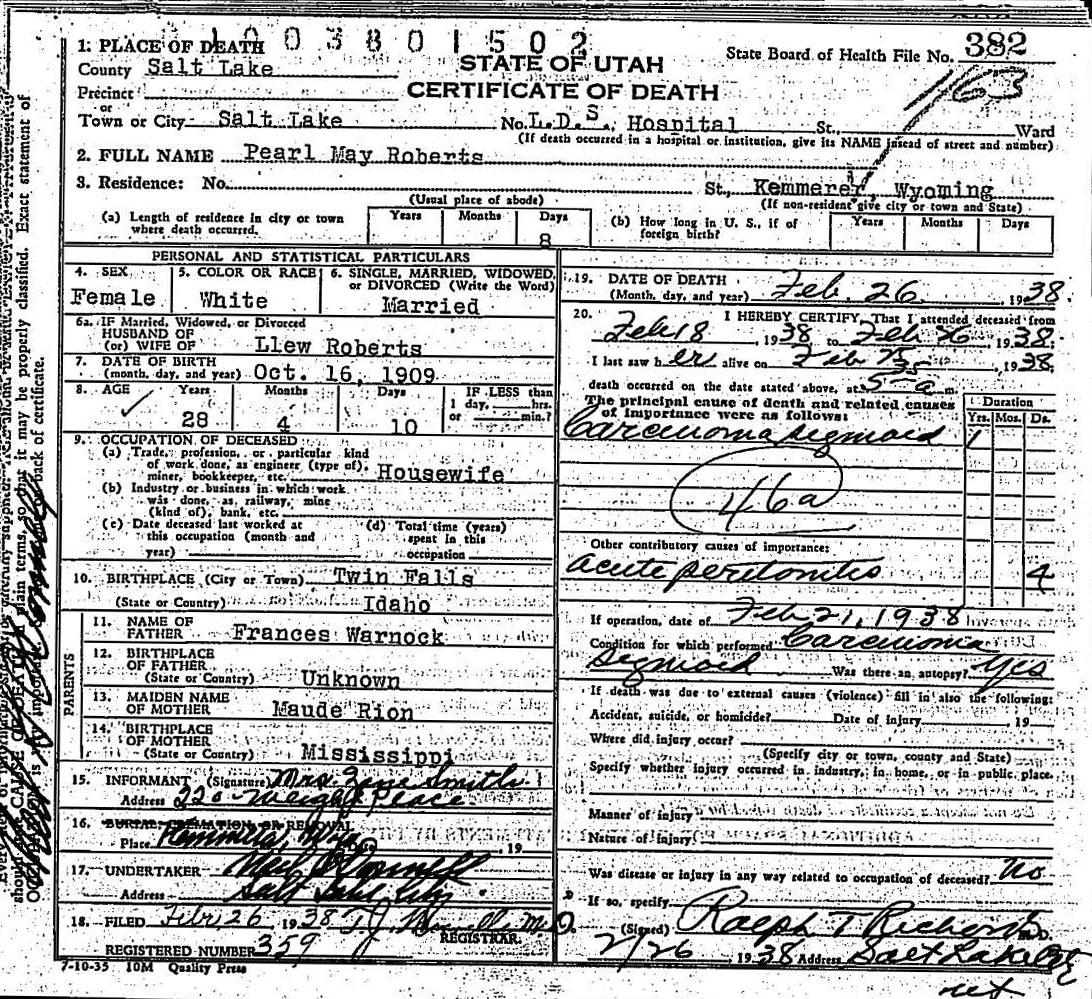 1003801502
1: PLACE OF DEATH
State Board of Health File No. 382
County Salt Lake
STATE OF UTAH
Precinct
CERTIFICATE OF DEATH
1163
or
Town or City Salt Lake No. L.D.S. Hospital St., Ward
(If death occurred in a hospital or institution, give its NAME instead of street and number)
2. FULL NAME Pearl May Roberts
3. Residence: No. St., Kemmerer, Wyoming
(Usual place of abode) (If non-resident give city or town and State)
(a) Length of residence in city or town where death occurred. Years Months Days 8
(b) How long in U. S., if of foreign birth? Years Months Days
PERSONAL AND STATISTICAL PARTICULARS
4. SEX Female
5. COLOR OR RACE White
6. SINGLE, MARRIED, WIDOWED, or DIVORCED (Write the Word) Married
6a. IF Married, Widowed, or Divorced
HUSBAND OF
(or) WIFE OF Llew Roberts
7. DATE OF BIRTH
(month, day, and year) Oct. 16, 1909
8. AGE Years Months Days IF LESS than
1 day, hrs.
or min.?
28 4 10
9. OCCUPATION OF DECEASED
(a) Trade, profession, or particular kind
of work done, as engineer (type of),
miner, bookkeeper, etc. Housewife
(b) Industry or business in which work
was done, as railway, mine
(kind of), bank, etc.
(c) Date deceased last worked at
this occupation (month and
year)
(d) Total time (years)
spent in this
occupation
10. BIRTHPLACE (City or Town) Twin Falls
(State or Country) Idaho
PARENTS
11. NAME OF
FATHER Frances Warnock
12. BIRTHPLACE
OF FATHER
(State or Country) Unknown
13. MAIDEN NAME
OF MOTHER Maude Rion
14. BIRTHPLACE
OF MOTHER
(State or Country) Mississippi
15. INFORMANT (Signature) Mrs. Smith
Address 220 Place
16. BURIAL, CREMATION, OR REMOVAL
Place 19
17. UNDERTAKER Neil O'Donnell
Address Salt Lake City
18. FILED Feb 26 1938 T.J. M.D.
REGISTRAR.
REGISTERED NUMBER 359
7-10-35 10M Quality Press
19. DATE OF DEATH
(Month, day, and year) Feb. 26, 1938.
20. I HEREBY CERTIFY, That I attended deceased from
Feb 18, 1938 to Feb 26, 1938.
I last saw her alive on Feb 25, 1938;
death occurred on the date stated above, at 5 35 a m.
The principal cause of death and related causes
of importance were as follows:
Duration
Yrs. Mos. Ds.
Carcinoma sigmoid 1
46a
Other contributory causes of importance:
acute peritonitis 4
If operation, date of Feb 21, 1938
Condition for which performed Carcinoma
Sigmoid Was there an autopsy? Yes
If death was due to external causes (violence) fill in also the following:
Accident, suicide, or homicide? Date of injury 19
Where did injury occur?
(Specify city or town, county and State)
Specify whether injury occurred in industry, in home, or in public place.
Manner of injury
Nature of injury
Was disease or injury in any way related to occupation of deceased? No
If so, specify
(Signed) Ralph T Richards M.D.
2/26 1938 Address Salt Lake City
should state CAUSE OF DEATH in plain terms, so that it may be properly classified. Exact statement of
OCCUPATION is very important. back of certificate.